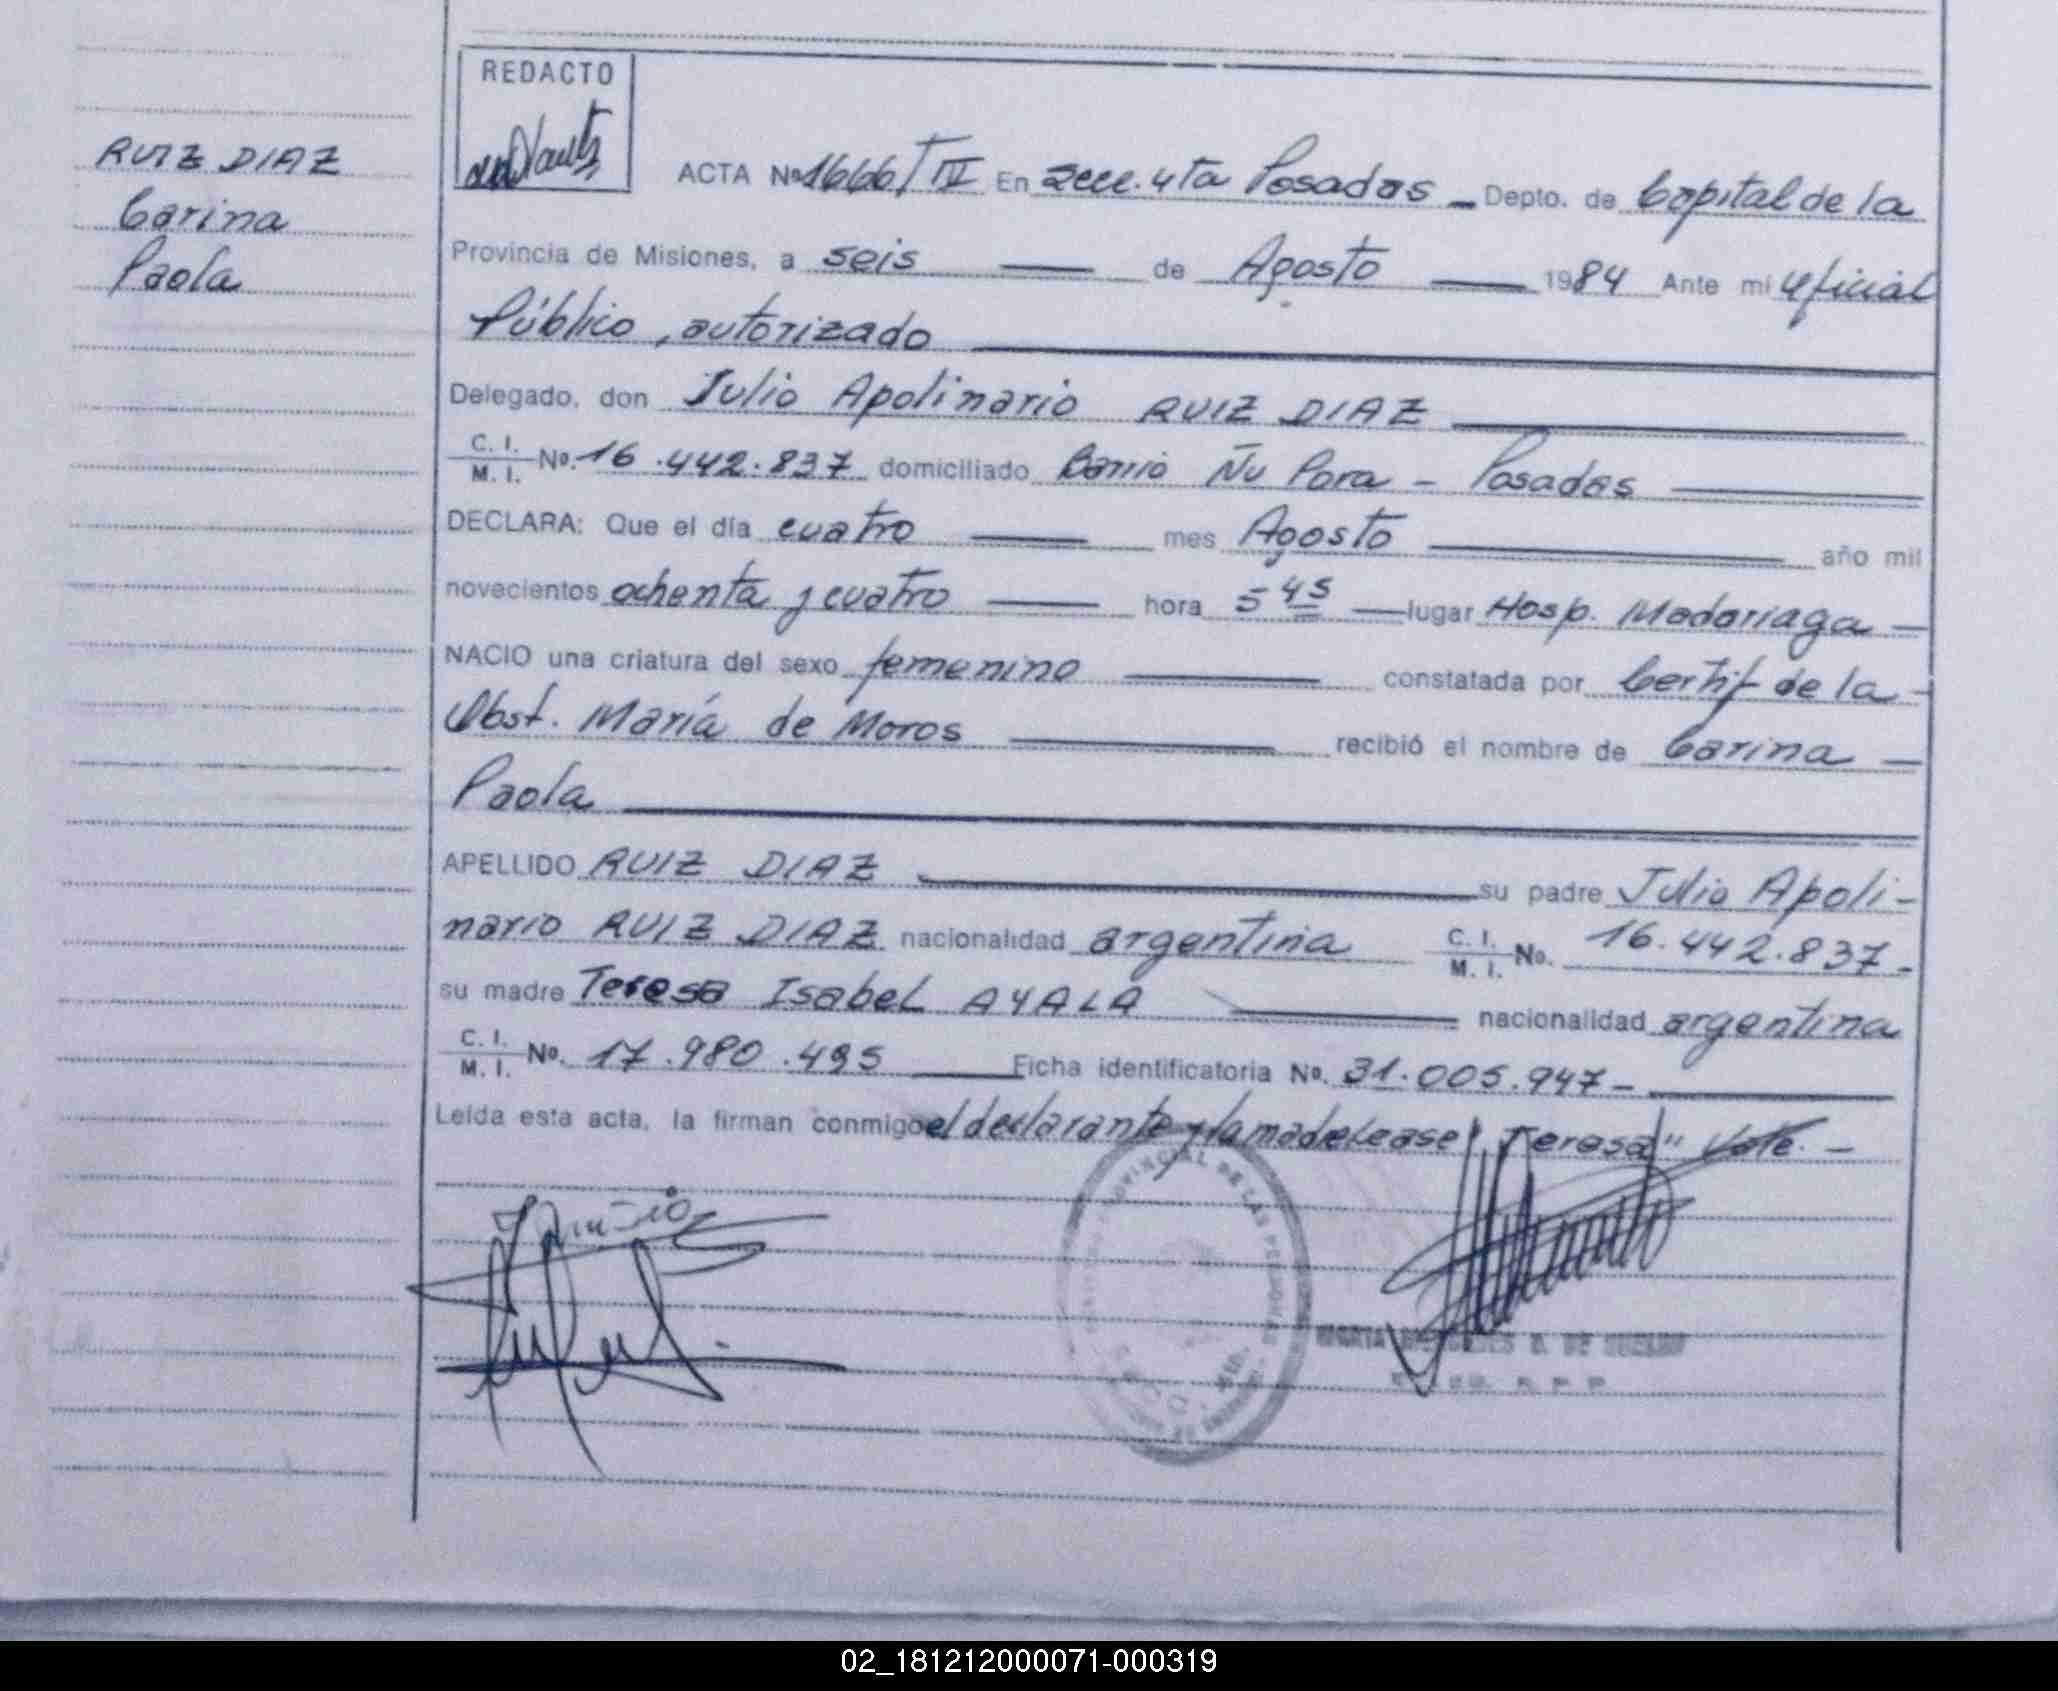 RUIZ DIAZ
Carina
Paola
REDACTO
ACTA Nº 1666/T IV En Secc. 4ta Posadas - Depto. de Capital de la
Provincia de Misiones, a seis de Agosto 1984 Ante mi Oficial
Público, autorizado
Delegado, don Julio Apolinario RUIZ DIAZ
C. I.
M. I. Nº. 16.442.837 domiciliado Barrio Ñu Pora - Posadas
DECLARA: Que el día cuatro mes Agosto año mil
novecientos ochenta y cuatro hora 5 45 lugar Hosp. Madariaga -
NACIO una criatura del sexo femenino constatada por Certif de la -
Obst. María de Moros recibió el nombre de Carina -
Paola
APELLIDO RUIZ DIAZ su padre Julio Apoli-
nario RUIZ DIAZ nacionalidad argentina C. I. M. I. No. 16.442.837.-
su madre Teresa Isabel AYALA nacionalidad argentina
C. I.
M. I. Nº. 17.980.495 Ficha identificatoria Nº. 31.005.947-
Leída esta acta, la firman conmigo el declarante y la madre Lease "Teresa" Vale. -
PROVINCIAL DE LAS PERSONAS
02_181212000071-000319